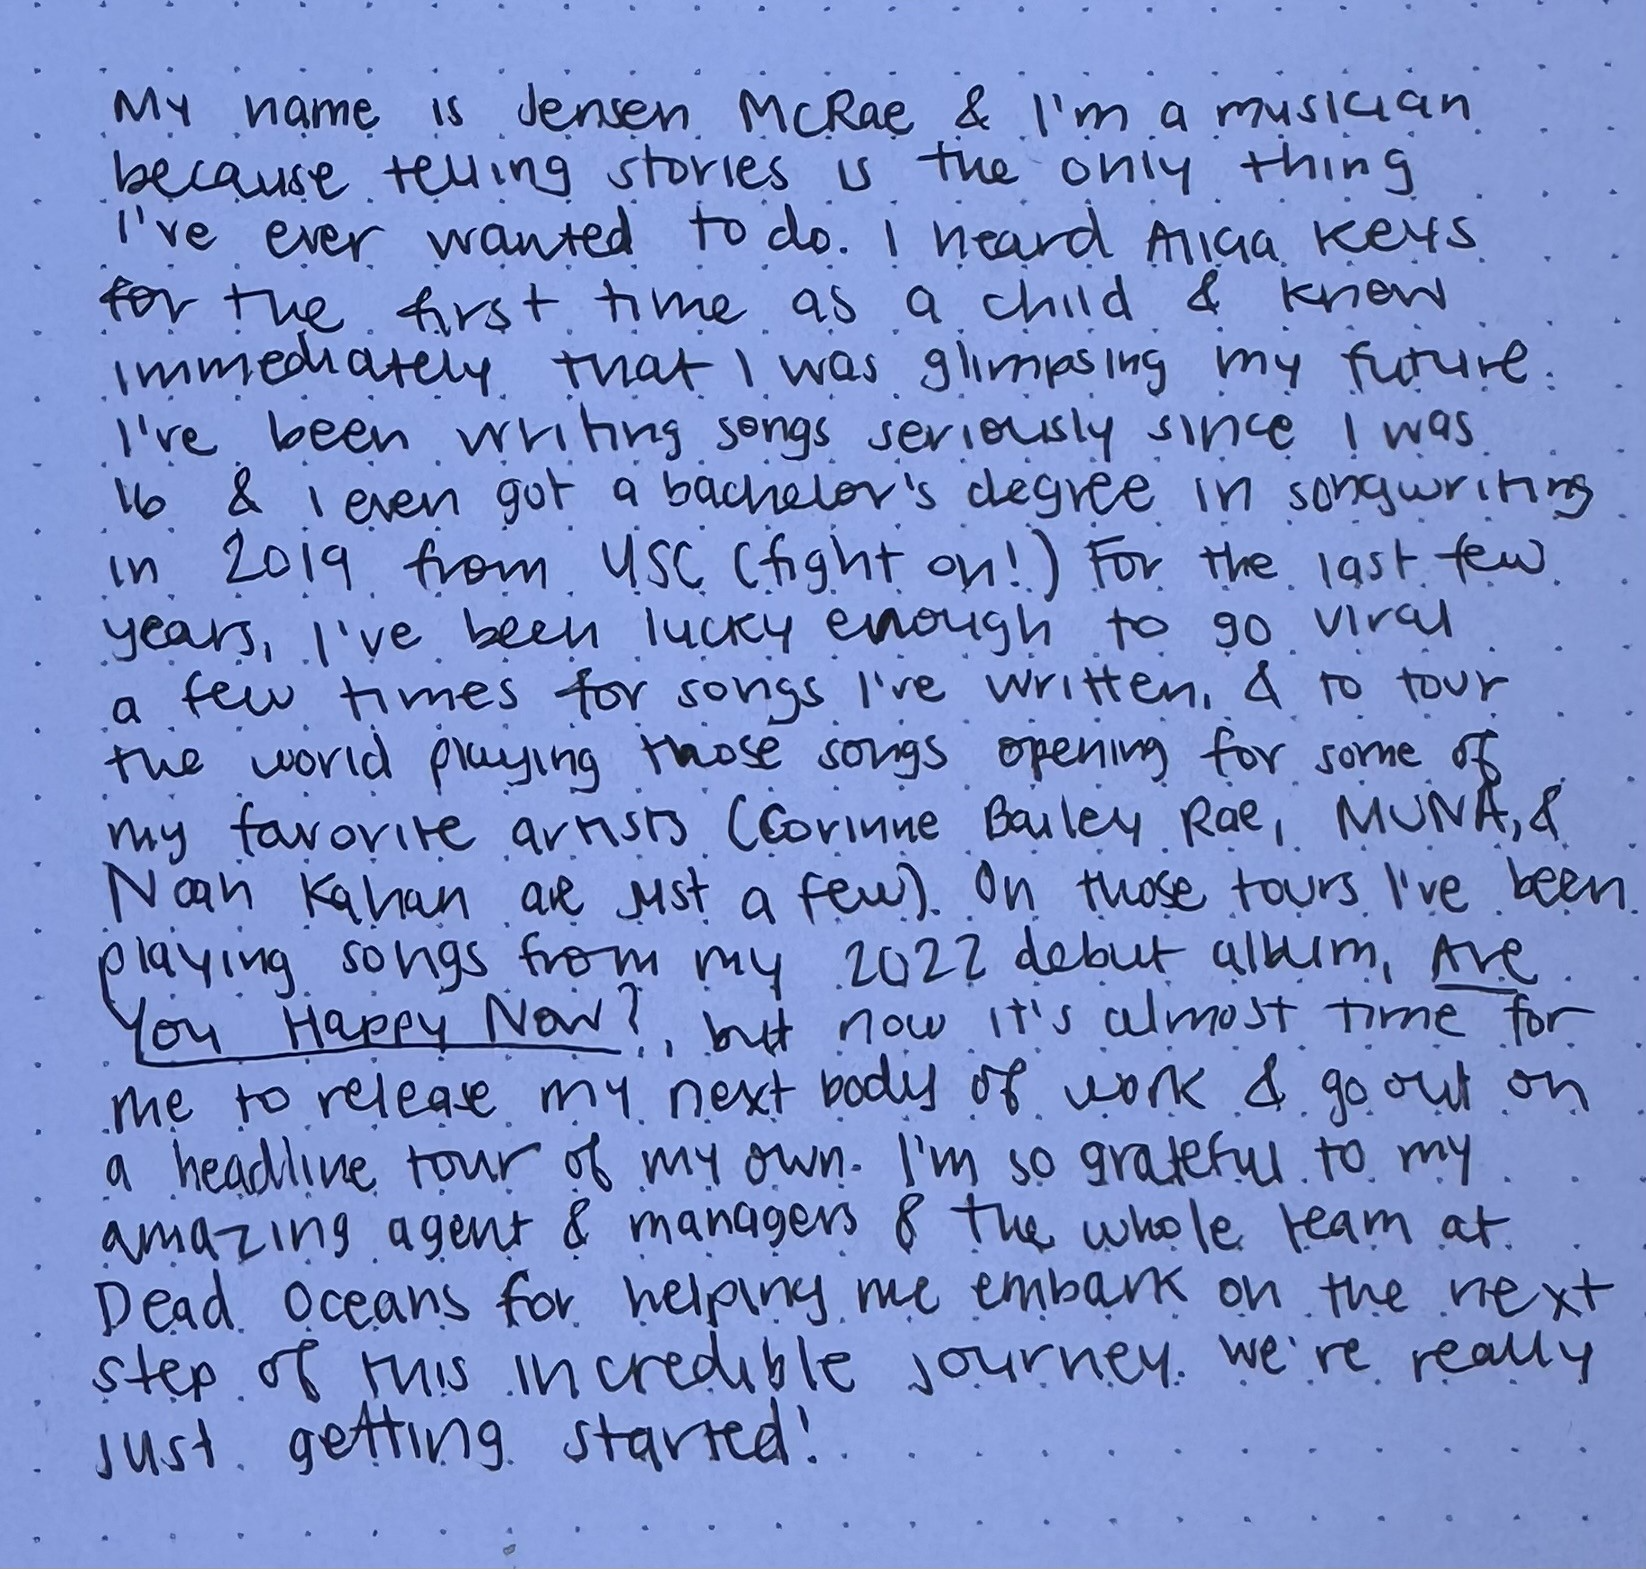 My name is Jensen McRae & I'm a musician
because telling stories is the only thing
I've ever wanted to do. I heard Alicia Keys
for the first time as a child & knew
immediately that I was glimpsing my future.
I've been writing songs seriously since I was
16 & I even got a bachelor's degree in songwriting
in 2019 from USC (fight on!) For the last few
years, I've been lucky enough to go viral
a few times for songs I've written, & to tour
the world playing those songs opening for some of
my favorite artists (Corinne Bailey Rae, MUNA, &
Noah Kahan are just a few). On those tours I've been
playing songs from my 2022 debut album, Are
You Happy Now?, but now it's almost time for
me to release my next body of work & go out on
a headline tour of my own. I'm so grateful to my
amazing agent & managers & the whole team at
Dead Oceans for helping me embark on the next
step of this incredible journey. We're really
just getting started!